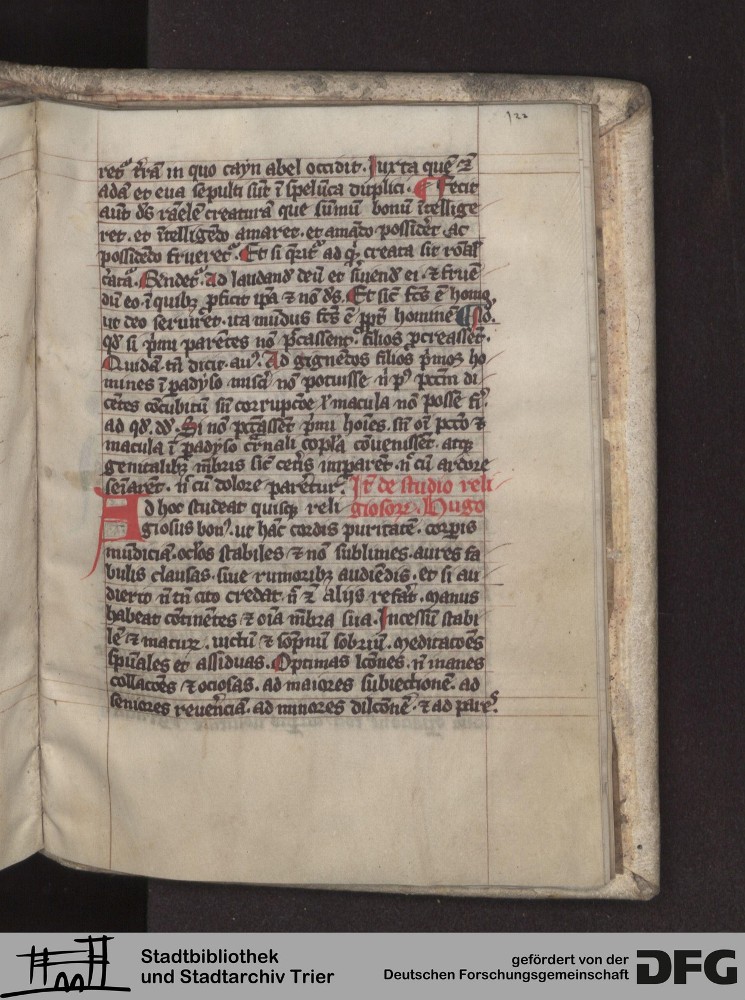 122
ret᷒ t̄rā in quo cayn abel occidit. Iuxta quē ⁊
adā et eua sepulti sūt ī spelūca duplici. ¶ Fecit
aūt ds̄ rōnalē creaturā que sūmū bonū ītellige
ret. et ītelligēdo amaret. et amādo possidēt ac
possidēdo frueret᷒. Et si q̄rit᷒ ad q̄ creata sit
c̄atā. Ad laudand deū et s̄uiend ei. ⁊ fruē
dū eo. ī quibꝫ ꝓficit ip̄a ⁊ nō ds̄. Et sic̄ fc̄s ē homo,
ut deo seruiret. ita mūdus fc̄s ē ꝓpt̄ hominē ¶
qd̄ si p̄mi parētes nō pc̄assent. filios ꝓcreassēt.
Quidā tn̄ dicit. Ad gignēdos filios p̄mos ho
mines ī padyso misc̄i nō potuisse n̄ pꝰ pcc̄m di
cētes cōcubitū sn̄ corrupcōe l̄ macula nō posse
ad qd̄. dd̄. Si nō pc̄assēt p̄mi hoīes. sn̄ oī pcc̄o ⁊
macula ī padyso carnali copl̄a cōuenissēt. atqꝫ
genitalibꝫ mb̄ris sic̄ cet̄is imparēt. n̄ cū ardore
n̄ cū dolore paretur. It̄ de studio reli
Ad hoc studeat quisqꝫ reli giosoꝝ. Hugo
giosus bonꝰ. ut hāc cordis puritatē. corꝑis
mūdiciā. oc̄los stabiles ⁊ nō sublimes. aures fa
bulis clausas. siue rumoribꝫ audiēdis. et si au
dierit n̄ tn̄ cito credat. n̄ ⁊ alijs refāt. manus
habeat cōtinētes ⁊ oīa mb̄ra sua. Incessū stabi
lē ⁊ matuꝝ. uictū ⁊ sōpnū sobriū. meditacōēs
spūales et assiduas. Optimas lc̄ōnes. n̄ inanes
collacōēs ⁊ ociosas. ad maiores subiectionē. ad
seniores reuēnciā. ad minores dilc̄ōnē. ⁊ ad pares.
Stadtbibliothek
und Stadtarchiv Trier
gefördert von der
Deutschen Forschungsgemeinschaft
DFG